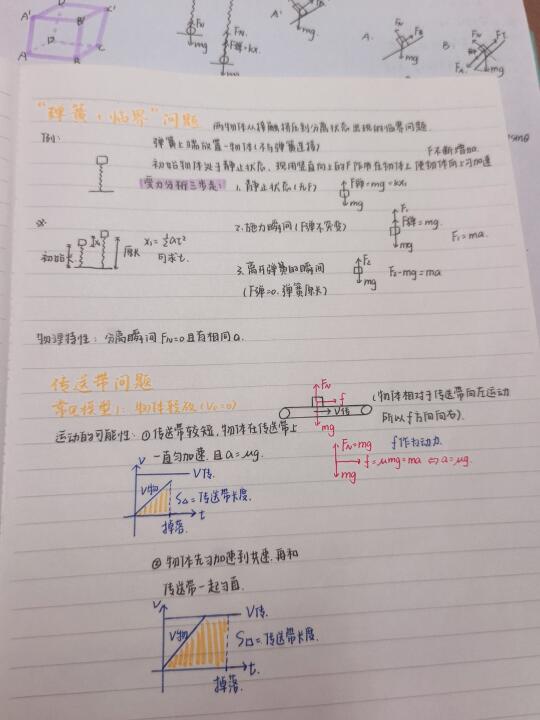 A' D' C'
B'
D
A B C
FN
mg
FN
F弹=kx.
mg
A'
mg
A.
FN
mg
B.
mg
"弹簧+临界"问题 两物体从接触挤压到分离状态出现的临界问题.
例: 弹簧上端放置一物体(不与弹簧连接) F不断增加.
初始物体处于静止状态, 现用竖直向上的F作用在物体上使物体向上匀加速
受力分析三步走: 1. 静止状态(无F) F弹=mg=kx1
mg
※ 2. 施力瞬间(F弹不突变) F1
F弹=mg.
mg
F1=ma.
初始长 x1 原长 x1=½at²
可求t.
3. 离开弹簧的瞬间 F2
F2-mg=ma
(F弹=0. 弹簧原长) mg
物理特性: 分离瞬间 FN=0 且有相同a.
传送带问题
常见模型1: 物体轻放(V0=0)
FN
f
V传
mg
(物体相对于传送带向左运动
所以f方向向右).
运动的可能性: ①传送带较短, 物体在传送带上
一直匀加速. 且a=μg.
FN=mg f作为动力
f=μmg=ma ⇔ a=μg.
mg
V
V传.
V物
S△=传送带长度.
t
掉落.
②物体先匀加速到共速. 再和
传送带一起匀直.
V
V传.
V物
S=传送带长度.
t.
掉落.